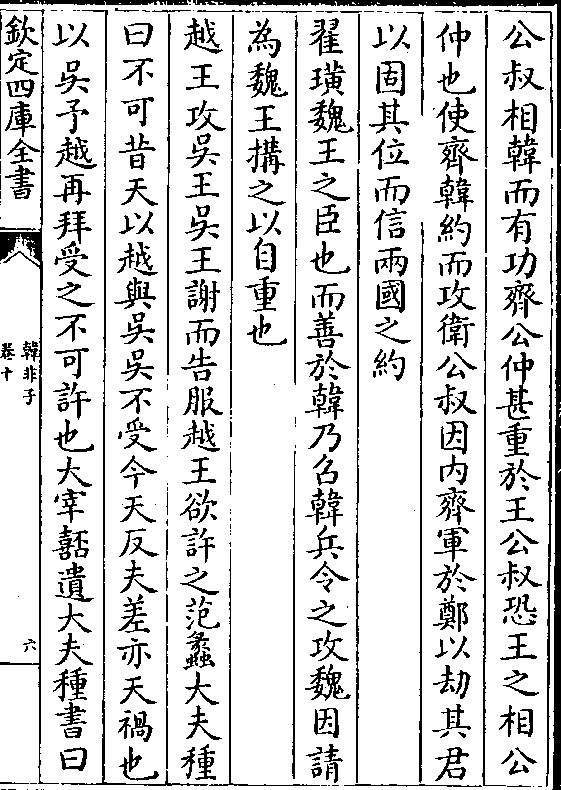 公叔相韓而有功齊公仲甚重於王公叔恐王之相公
仲也使齊韓約而攻衛公叔因内齊軍於鄭以劫其君
以固其位而信兩國之約
翟璜魏王之臣也而善於韓乃召韓兵令之攻魏因請
為魏王搆之以自重也
越王攻吳王吳王謝而告服越王欲許之范蠡大夫種
曰不可昔天以越與吳吳不受今天反夫差亦天禍也
以吳予越再拜受之不可許也大宰嚭遺大夫種書曰
欽定四庫全書
韓非子
卷十
六